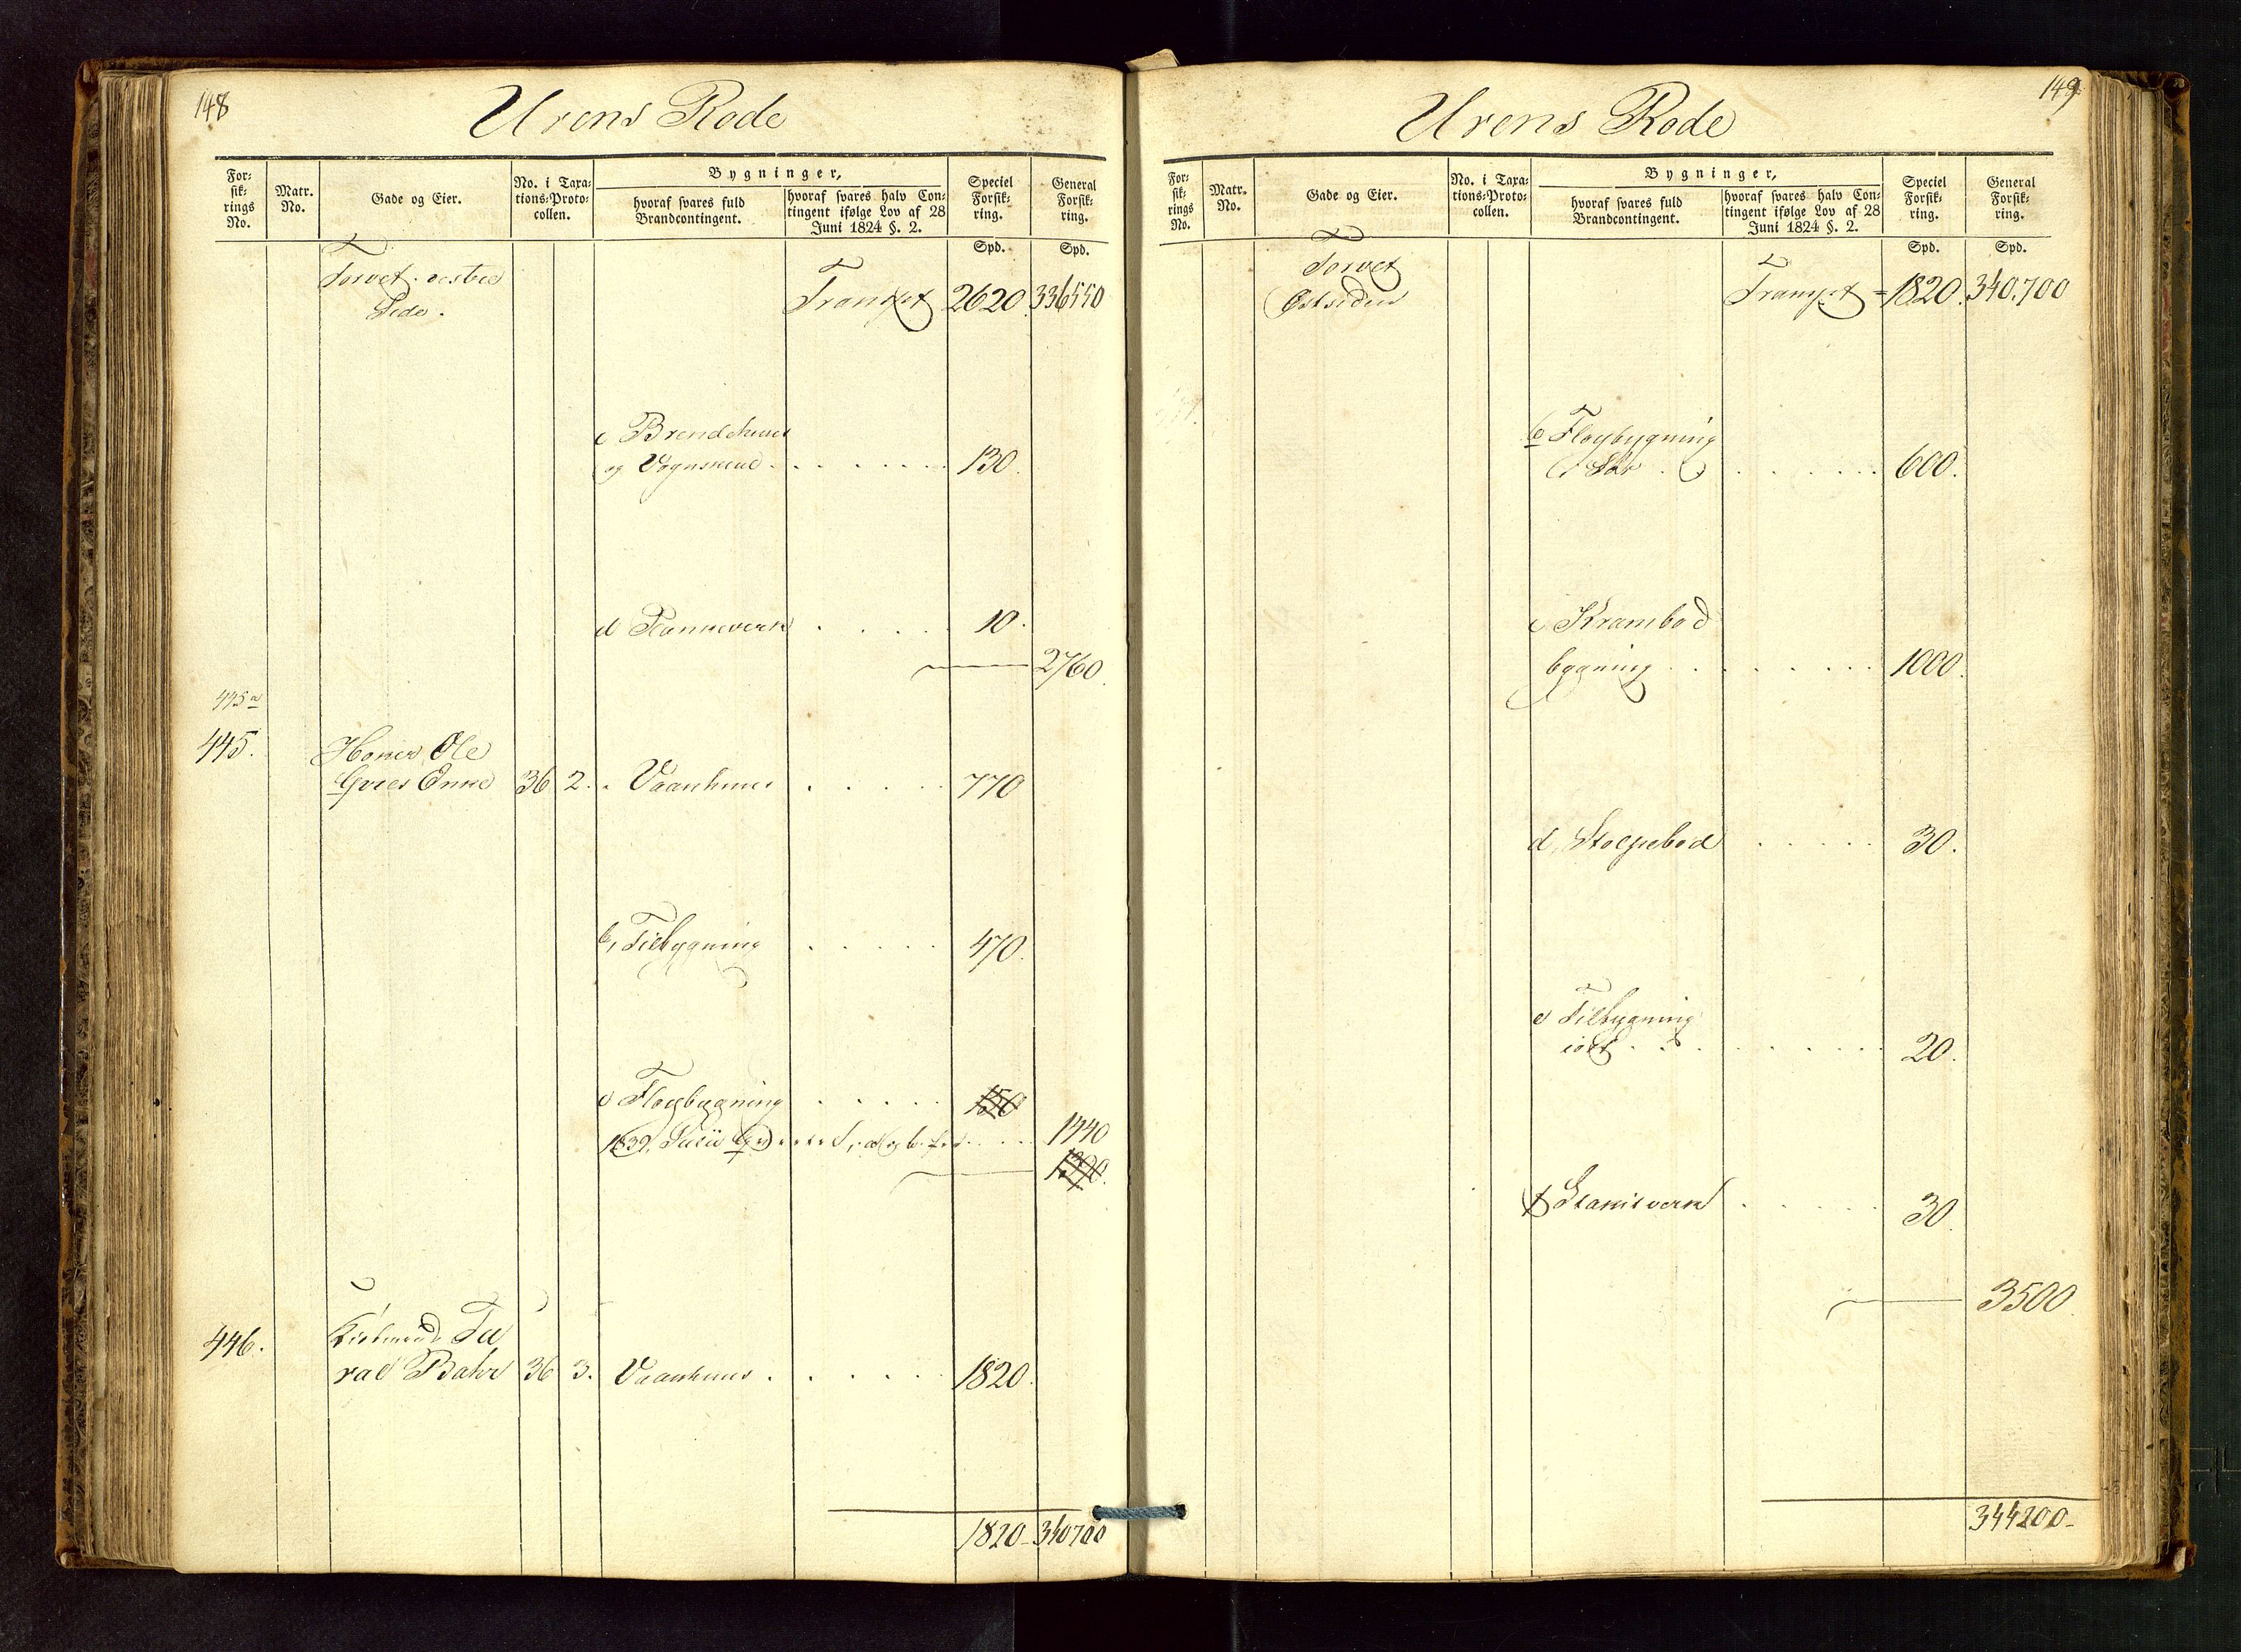 148
Urens Rode
For-
sik-
rings
No.
Matr.
No.
Gade og Eier.
No. i Taxa-
tions-Proto-
collen.
Bygninger,
hvoraf svares fuld
Brandcontingent.
hvoraf svares halv Con-
tingent ifølge Lov af 28
Juni 1824 §. 2.
Speciel
Forsik-
ring.
General
Forsik-
ring.
Spd.
Spd.
Torvet
Side.
Transpt 2620. 336550
c Brendehuus
og Vognskuul 130.
d Plankeverk 10.
2760.
445 a
445. Ole
Enke 36 2. Vaanhuus 770
b, Tilbygning 470.
c Fløybygning 150
1839. 1440
1390.
446.
Bahr 36 3. Vaanhuus 1820.
1820 - 340700
149
Urens Rode
For-
sik-
rings
No.
Matr.
No.
Gade og Eier.
No. i Taxa-
tions-Proto-
collen.
Bygninger,
hvoraf svares fuld
Brandcontingent.
hvoraf svares halv Con-
tingent ifølge Lov af 28
Juni 1824 §. 2.
Speciel
Forsik-
ring.
General
Forsik-
ring.
Spd.
Spd.
Torvet
Østsiden
Transpt = 1820. 340.700
b Fløybygning
600.
c Krambod
bygning 1000.
d, Stolpebod 30.
e Tilbygning
20.
f 30.
3500.
344200-